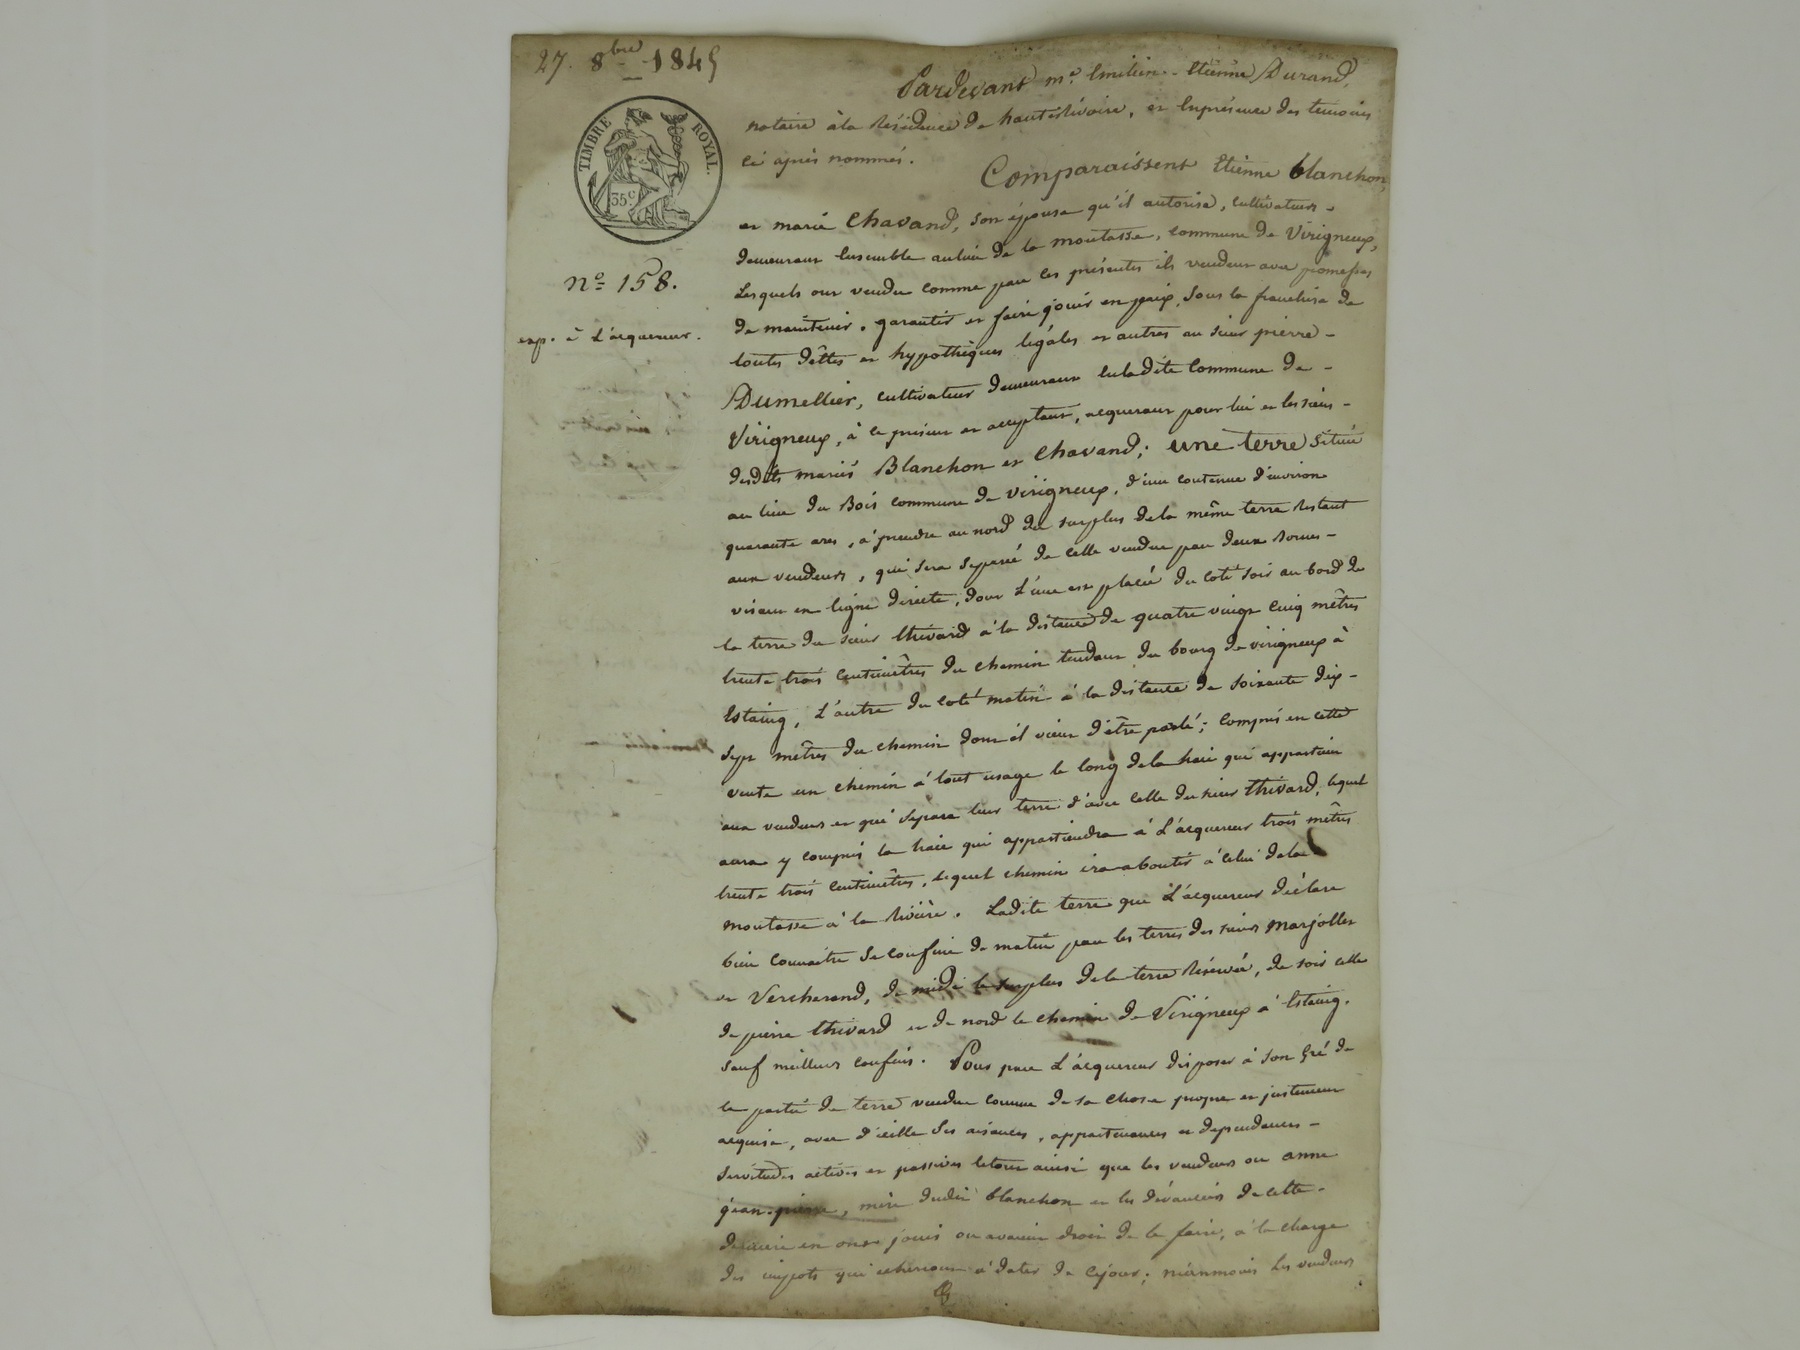 27. 8bre 1845
TIMBRE ROYAL.
35 C
nº 158.
exp. à l'acquereur.
Pardevant me. Emilien-Etienne Durand,
notaire à la Résidence de hauterivoire, et en présence des temoins
ci après nommés.
Comparaissent Etienne blanchon,
et marie Chavand, son épouse qu'il autorise, cultivateurs
demeurant ensemble au lieu de la moutasse, commune de Virigneux,
Lesquels ont vendu comme par ces présentes ils vendent avec promesses
de maintenir, garantir et faire jouir en paix, sous la franchise de
toutes dêttes et hypothèques légales et autres au sieur pierre
Dumellier, cultivateur demeurant en la dite Commune de
Virigneux, à ce présent et acceptant, acquereur pour lui et les siens
desdits mariés Blanchon et Chavand; une terre située
au lieu du Bois commune de Virigneux, d'une contenue d'environ
quarante ares, à prendre au nord du surplus de la même terre restant
aux vendeurs, qui sera séparé de celle vendue par deux bornes
visant en ligne directe, dont l'une est placée du coté soir au bord de
la terre du sieur thivard à la distance de quatre vingt cinq mêtres
trente trois centimêtres du chemin tendant du bourg de virigneux à
Estaing, l'autre du coté matin à la distance de soixante dix
sept mêtres du chemin dont il vient d'être parlé; compris en cette
vente un chemin à tout usage le long de la haie qui appartient
aux vendeurs et qui sépare leur terre d'avec celle du sieur thivard, lequel
aura y compris la haie qui appartiendra à l'acquereur trois mêtres
trente trois centimêtres, lequel chemin ira aboutir à celui de la
moutasse à la rivière. Ladite terre que l'acquereur déclare
bien connaitre se confine de matin par les terres des sieurs Marjollet
et Vercherand, de midi le surplus de la terre réservée, de soir celle
de pierre thivard et de nord le chemin de Virigneux à Estaing.
sauf meilleurs confins. Pour par l'acquereur disposer à son gré de
la partie de terre vendue comme de sa chose propre et justement
acquise, avec d'icelle ses aisances, appartenances et dependances
servitudes actives et passives le tout ainsi que les vendeurs ou anne
jean-pierre, mère dudit blanchon et les devanciers de cette
derniere en ont joui ou avaient droit de le faire, à la charge
des impots qui écherront à dater de ce jour; néanmoins les vendeurs